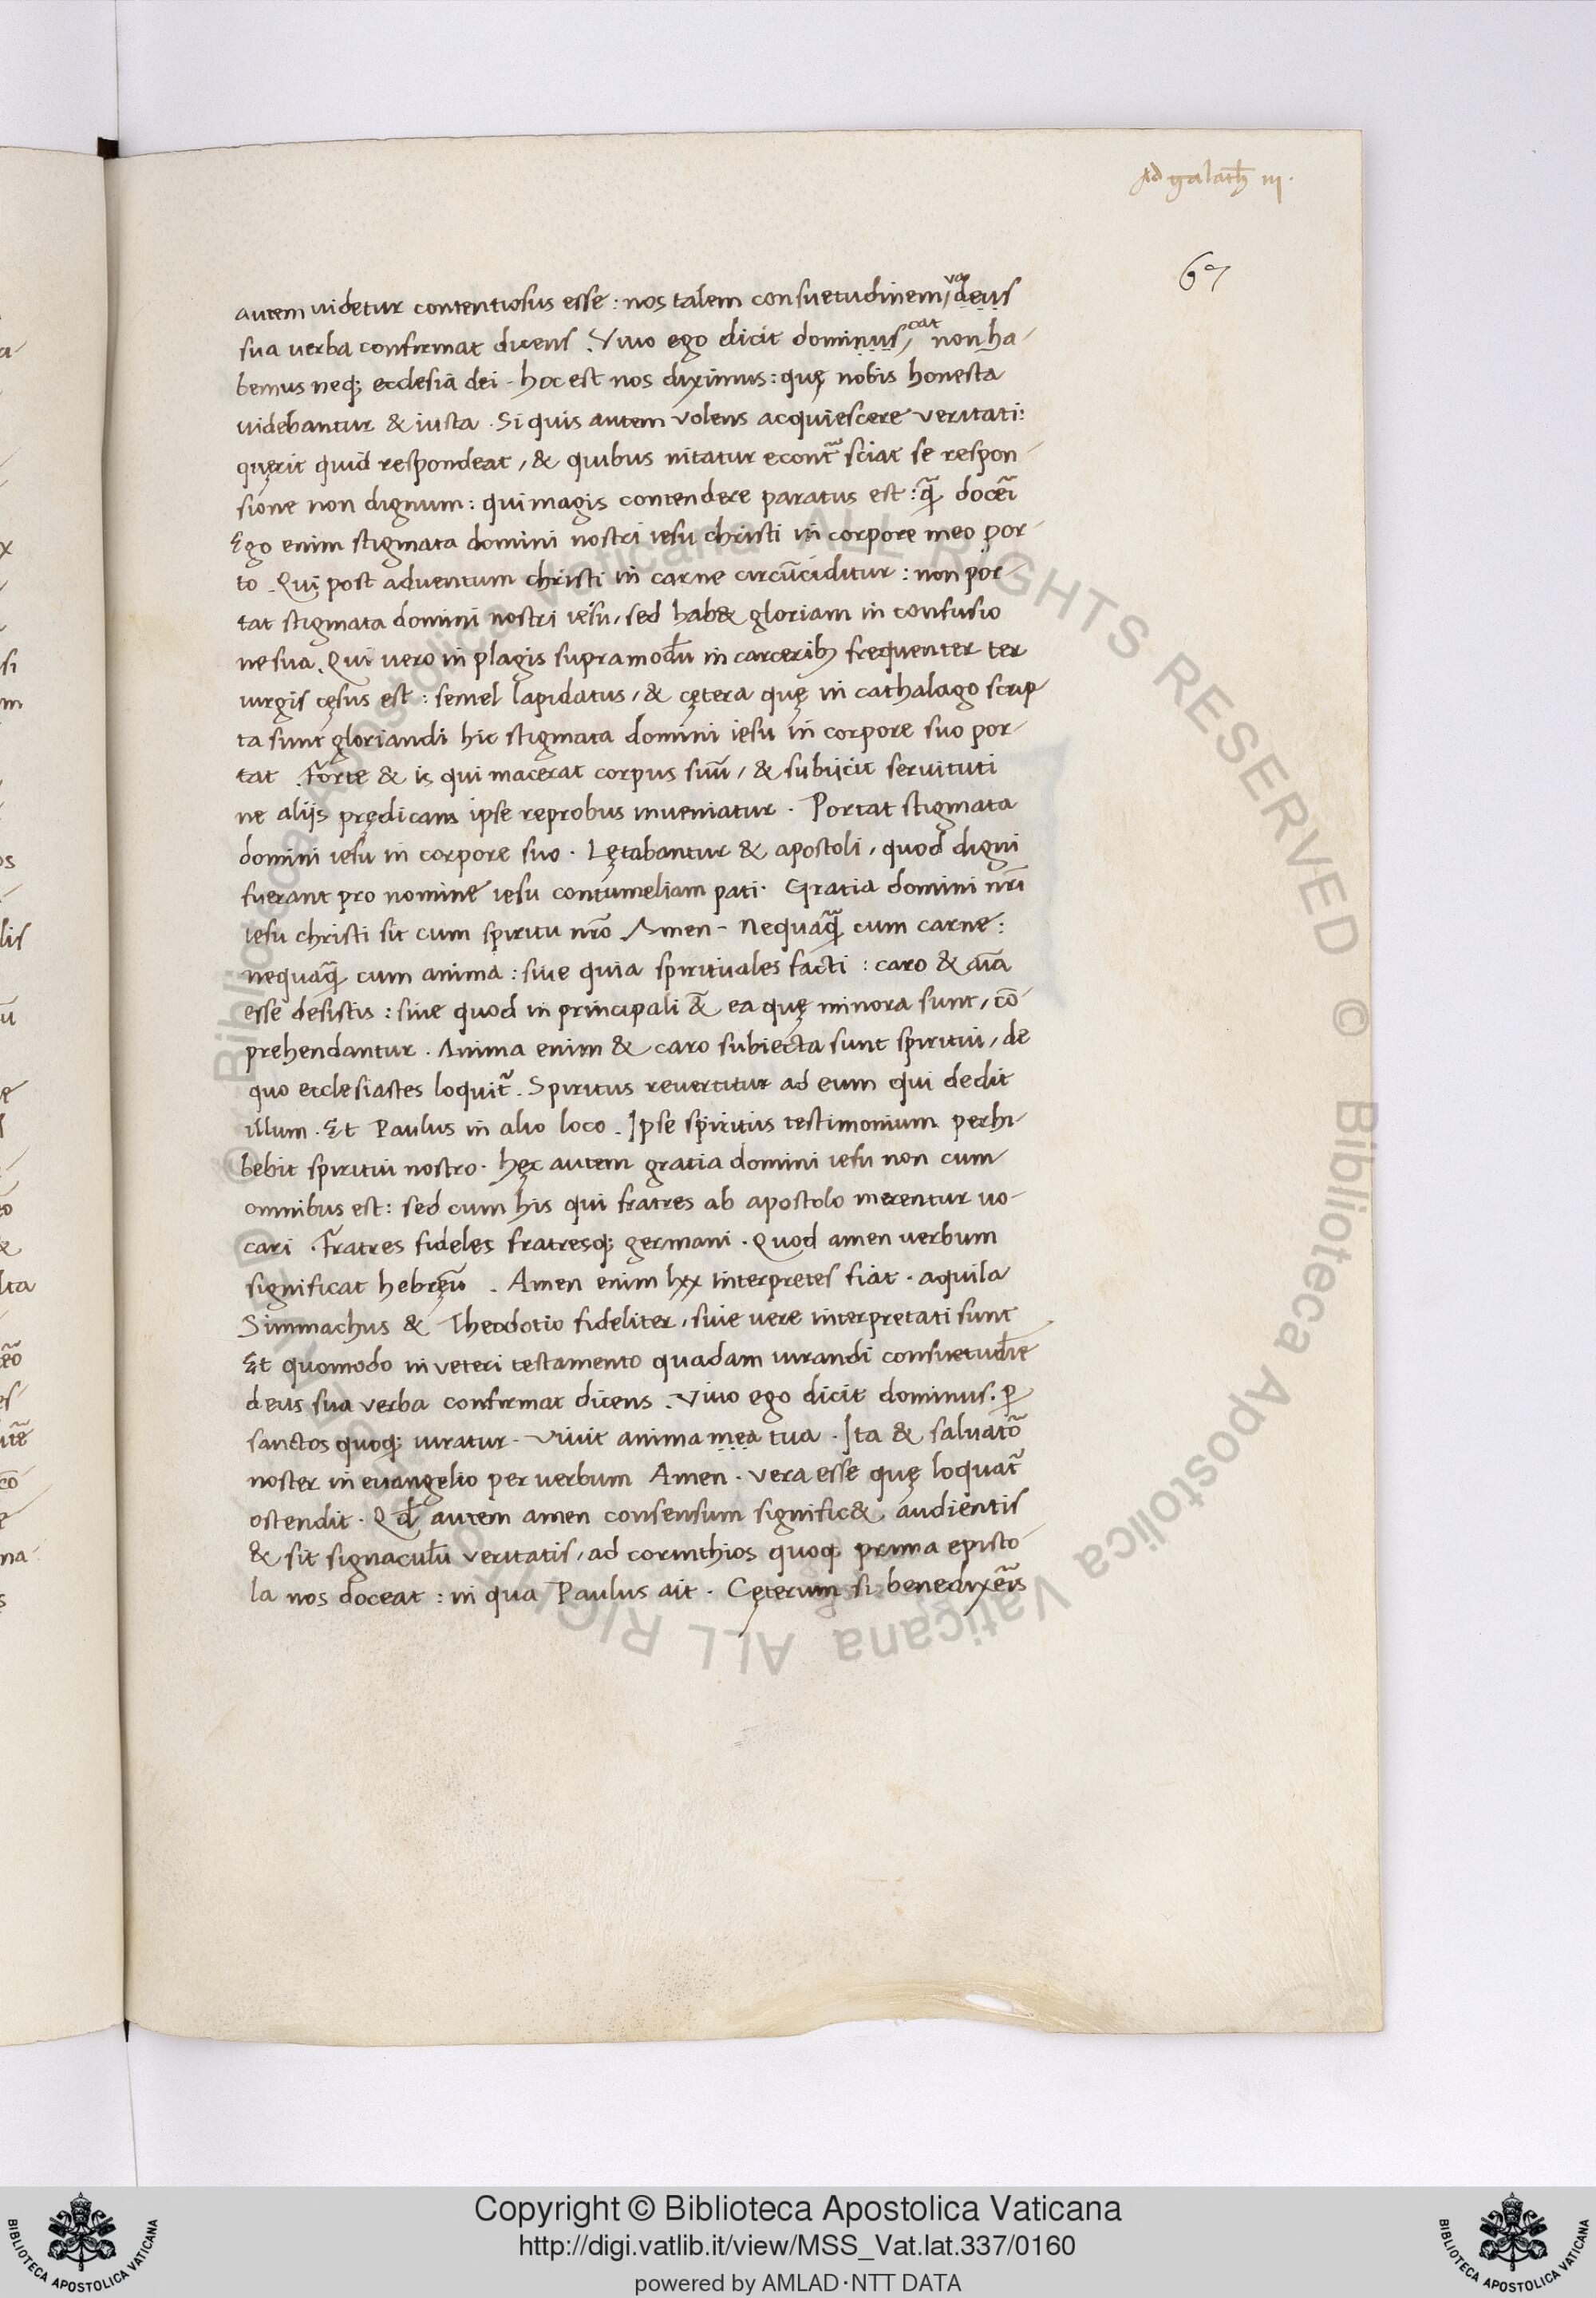 Ad galath̄ iii.
67
autem uidetur contentiosus esse : nos talem consuetudinem, va deus
sua uerba confirmat dicens . Viuo ego dicit dominus, cat non ha-
bemus neq; ecclesiā dei - hoc est nos diximus : quę nobis honesta
uidebantur & iusta . Si quis autem volens acquiescere veritati:
quęrit quid respondeat, & quibus nitatur econt̃ sciat se respon-
sione non dignum : qui magis contendere paratus est : q̃ doceri
Ego enim stigmata domini nostri iesu christi in corpore meo por-
to . Qui post aduentum christi in carne circūciditur : non por-
tat stigmata domini nostri iesu, sed hab& gloriam in confusio
ne sua . Qui vero in plagis supra modū in carcerib; frequenter ter
uirgis cęsus est : semel lapidatus, & cętera quę in cathalago scrip
ta sunt gloriandi hic stigmata domini iesu in corpore suo por-
tat . Forte & is qui macerat corpus suū, & subijcit seruituti
ne alijs prędicans ipse reprobus inueniatur . Portat stigmata
domini iesu in corpore suo . Lętabantur & apostoli, quod digni
fuerant pro nomine iesu contumeliam pati . Gratia domini nr̄i
iesu christi sit cum spiritu nr̄o . Amen - Nequaq̃ cum carne :
nequaq̃ cum anima : siue quia spirituales facti : caro & aīa
esse desistis : siue quod in principali & ea quę minora sunt, cō
prehendantur . Anima enim & caro subiecta sunt spiritui, de
quo ecclesiastes loquit̃ . Spiritus reuertitur ad eum qui dedit
illum . Et Paulus in alio loco . Ipse spiritus testimonium perhi-
bebit spiritui nostro . hęc autem gratia domini iesu non cum
omnibus est : sed cum his qui fratres ab apostolo merentur uo-
cari . Fratres fideles fratresq; germani . Quod amen uerbum
significat hebręū . Amen enim lxx interpretes fiat . aquila
Simmachus & Theodotio fideliter, siue uere interpretati sunt
Et quomodo in veteri testamento quadam iurandi consuetudīe
deus sua verba confirmat dicens . Viuo ego dicit dominus . p̱
sanctos quoq; iuratur . Viuit anima mea tua . Ita & saluatõ
noster in euangelio per uerbum Amen . vera esse quę loquat̃
ostendit . Qd̄ autem amen consensum signific& audientis
& sit signaculū veritatis, ad corinthios quoq; prima episto
la nos doceat : in qua Paulus ait . Cęterum si benedixeris
Copyright © Biblioteca Apostolica Vaticana
http://digi.vatlib.it/view/MSS_Vat.lat.337/0160
powered by AMLAD·NTT DATA